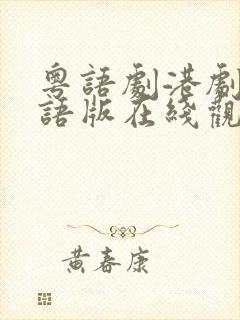 粵語劇港劇
語版在綫觀
黃春康